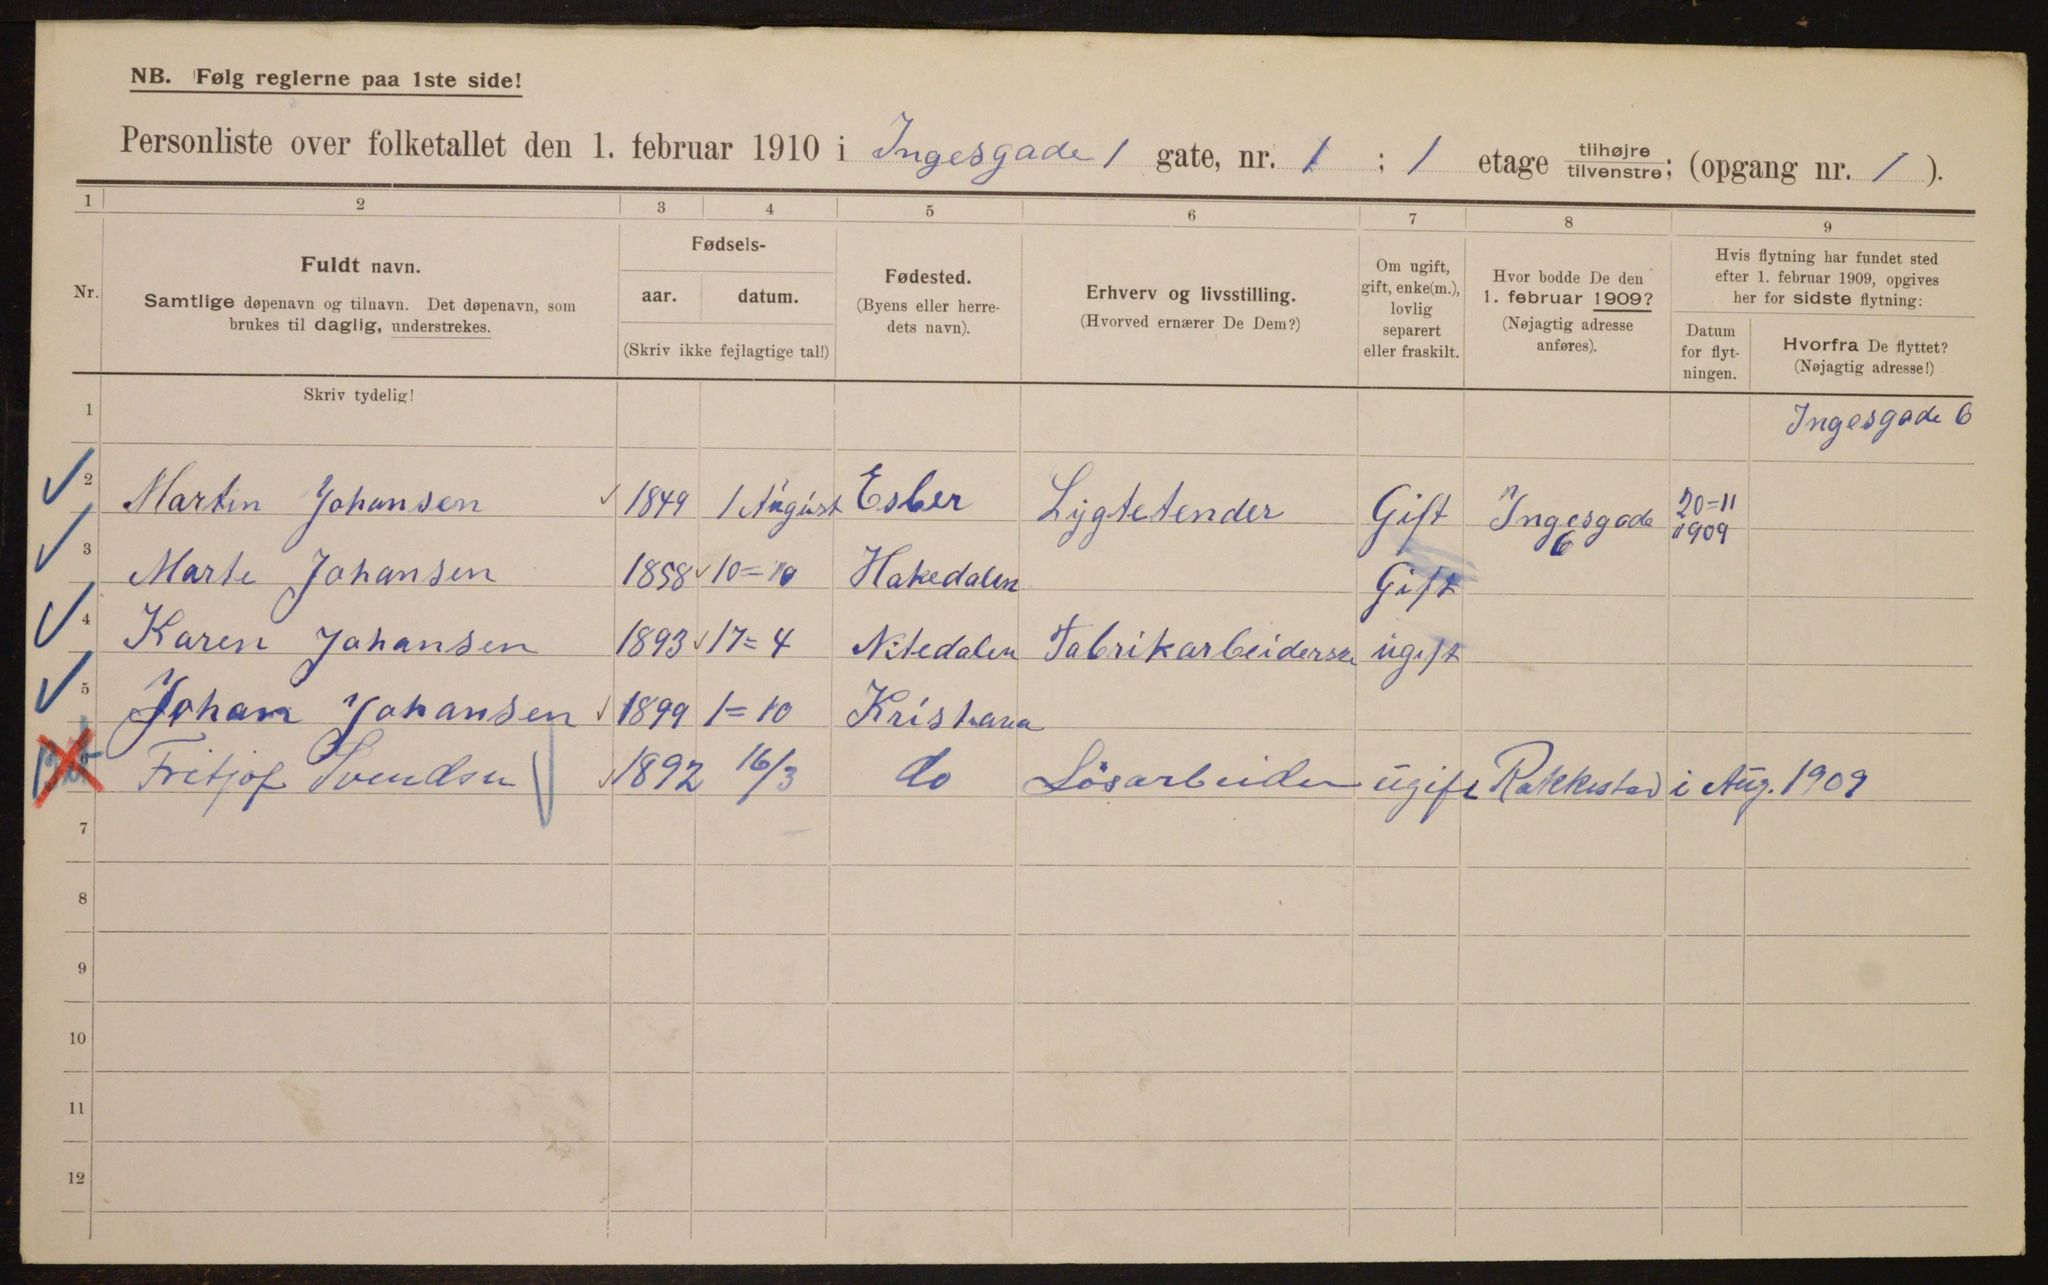 NB. Følg reglerne paa 1ste side!
Personliste over folketallet den 1. februar 1910 i Ingesgade 1 gate, nr. 1 ; 1 etage tilhøjre/tilvenstre; (opgang nr. 1 ).
1 2 3 4 5 6 7 8 9
Nr.
Fuldt navn.
Samtlige døpenavn og tilnavn. Det døpenavn, som
brukes til daglig, understrekes.
Fødsels-
aar. datum.
(Skriv ikke fejlagtige tal!)
Fødested.
(Byens eller herre-
dets navn).
Erhverv og livsstilling.
(Hvorved ernærer De Dem?)
Om ugift,
gift, enke(m.),
lovlig
separert
eller fraskilt.
Hvor bodde De den
1. februar 1909?
(Nøjagtig adresse
anføres).
Hvis flytning har fundet sted
efter 1. februar 1909, opgives
her for sidste flytning:
Datum
for flyt-
ningen.
Hvorfra De flyttet?
(Nøjagtig adresse!)
Skriv tydelig!
1 Ingesgade 6
2 Martin Johansen 1849 1 August Esber Lygtetender Gift Ingesgade 6 20=11 1909
3 Marte Johansen 1858 10=10 Hakedalen Gift
4 Karen Johansen 1893 17=4 Nitedalen Fabrikarbeiderske ugift
5 Johan Johansen 1899 1=10 Kristiania
6 Fritjof Svendsen 1892 16/3 do Løsarbeider ugift Rakkestad i Aug. 1909
7
8
9
10
11
12